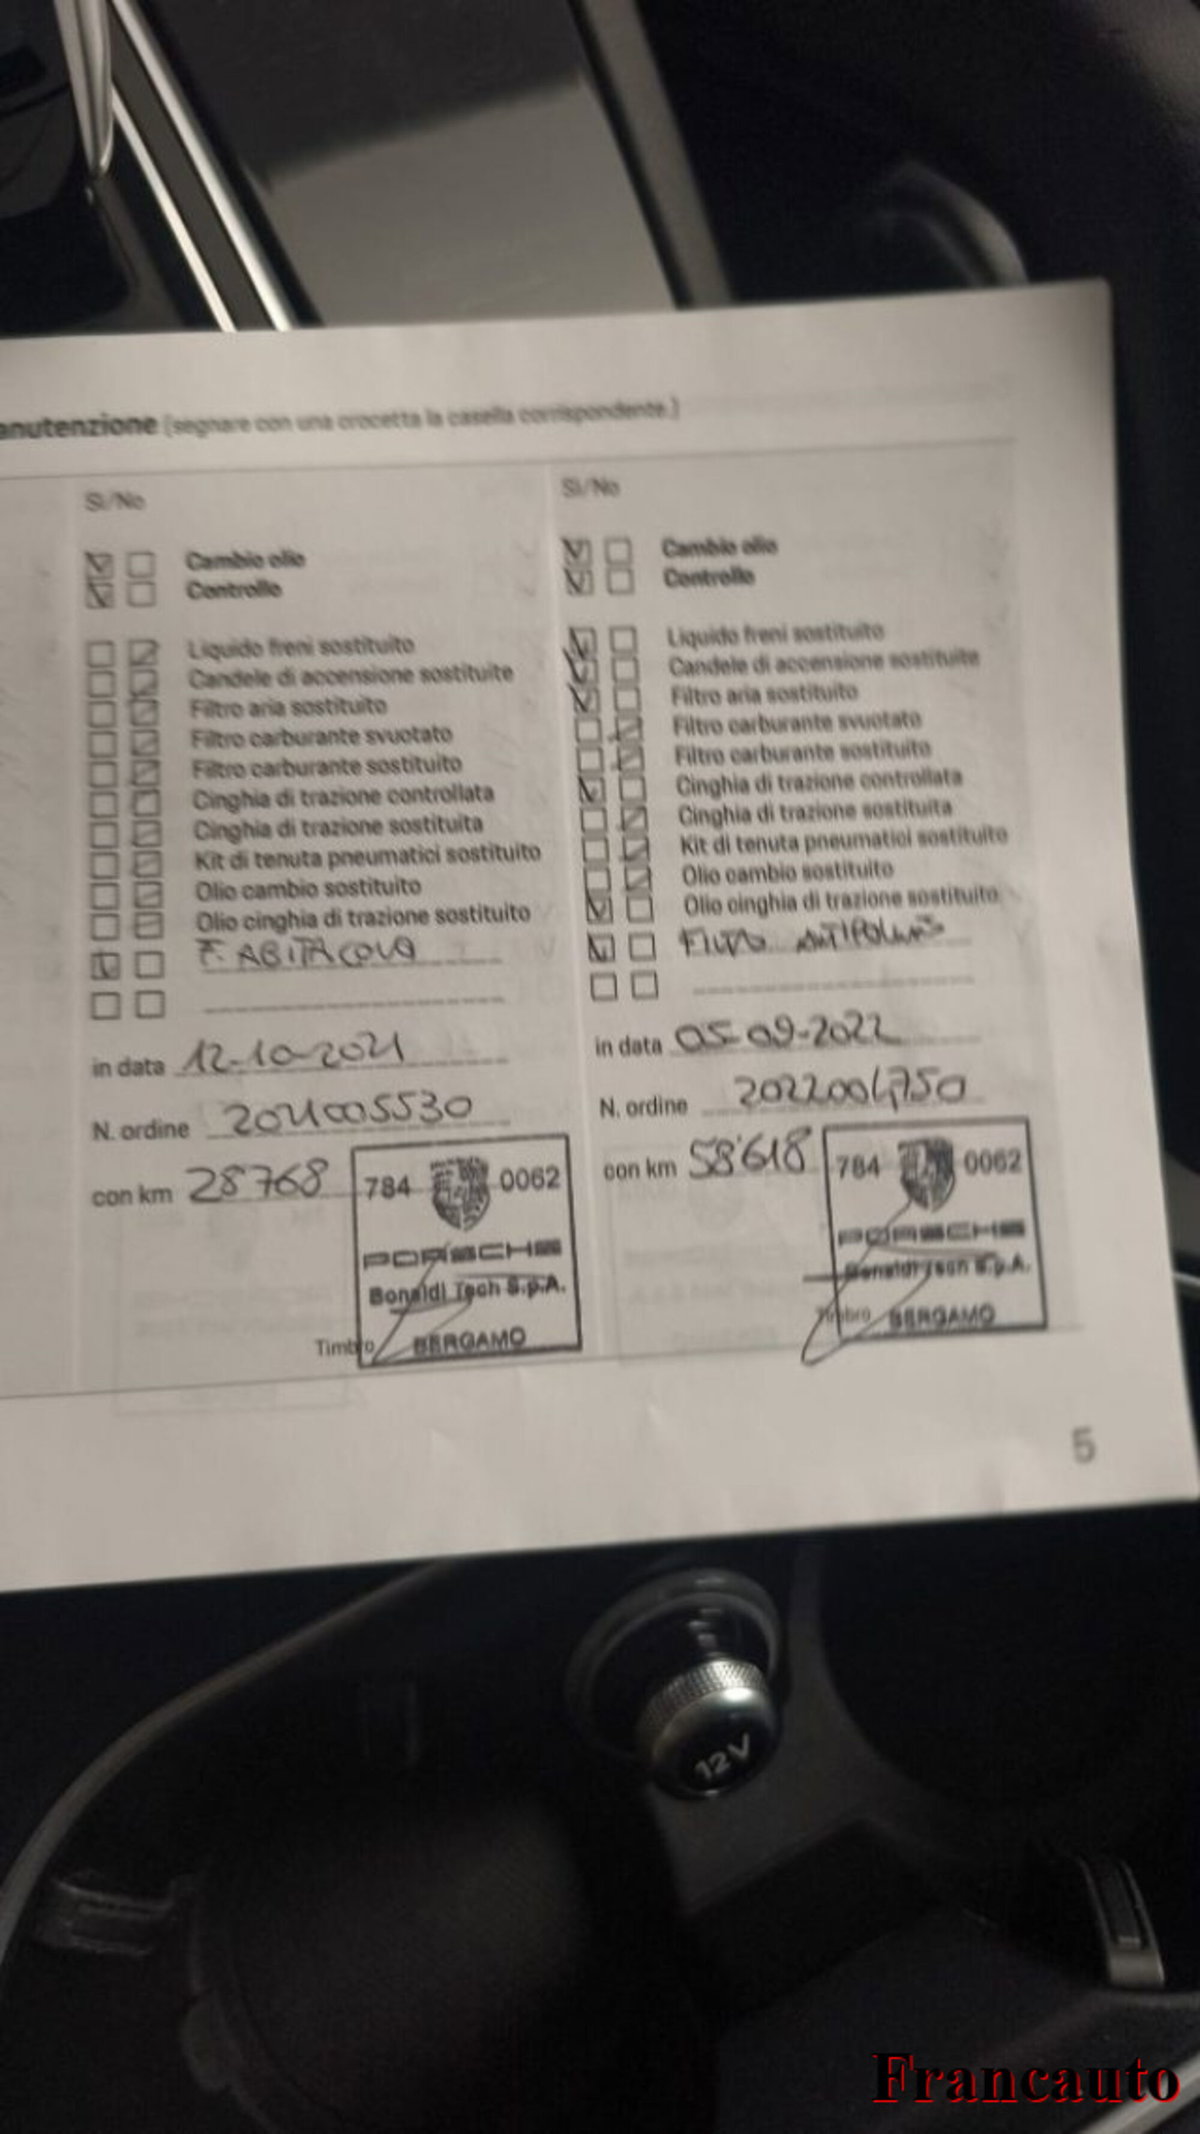 anutenzione (segnare con una crocetta la casella corrispondente.)
Sì/No
Cambio olio
Controllo
Liquido freni sostituito
Candele di accensione sostituite
Filtro aria sostituito
Filtro carburante svuotato
Filtro carburante sostituito
Cinghia di trazione controllata
Cinghia di trazione sostituita
Kit di tenuta pneumatici sostituito
Olio cambio sostituito
Olio cinghia di trazione sostituito
F. ABITACOLO
in data 12-10-2021
N. ordine 2021005530
con km 28768
784 0062
PORSCHE
Bonaldi Tech S.p.A.
Timbro BERGAMO
Sì/No
Cambio olio
Controllo
Liquido freni sostituito
Candele di accensione sostituite
Filtro aria sostituito
Filtro carburante svuotato
Filtro carburante sostituito
Cinghia di trazione controllata
Cinghia di trazione sostituita
Kit di tenuta pneumatici sostituito
Olio cambio sostituito
Olio cinghia di trazione sostituito
in data 05-09-2022
N. ordine 2022004750
con km 58618
784 0062
PORSCHE
Bonaldi Tech S.p.A.
Timbro BERGAMO
5
12V
Francauto